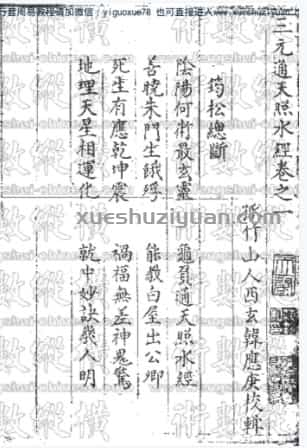 行韭周易教程请加微信：yiguoxue78 也可直接进入www.xueshuziyuan.com
三元通天照水經卷之一
孤竹山人西玄韓應庚校輯
筠松總斷
陰陽何術最玄靈 龜鼇通天照水經
善曉朱門生餓殍 能教白屋出公卿
死生有應乾坤震 禍福無差神鬼驚
地理天星相運化 就中妙訣幾人明
xueshuziyuan.com
術數縱橫